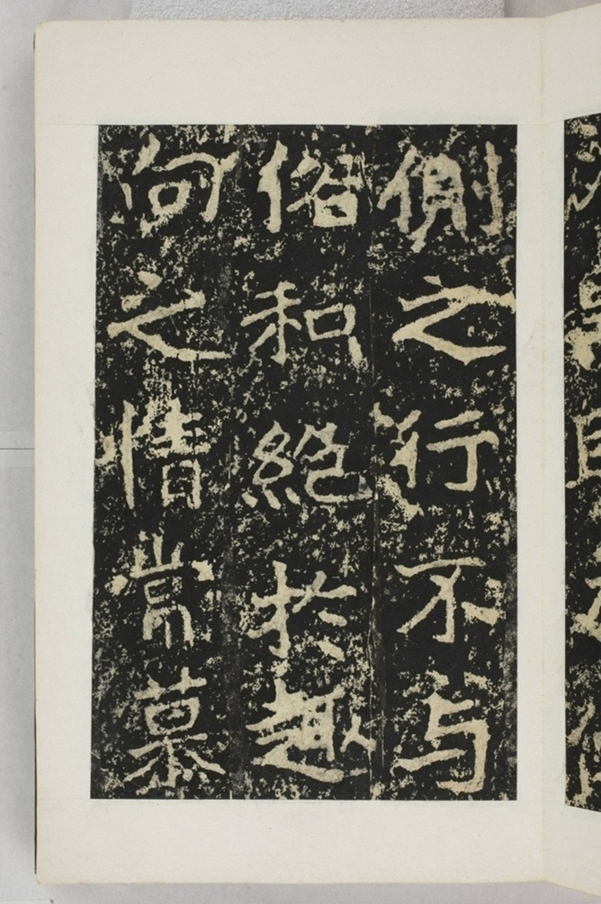 側之行不与
俗和絶於趣
向之情常慕